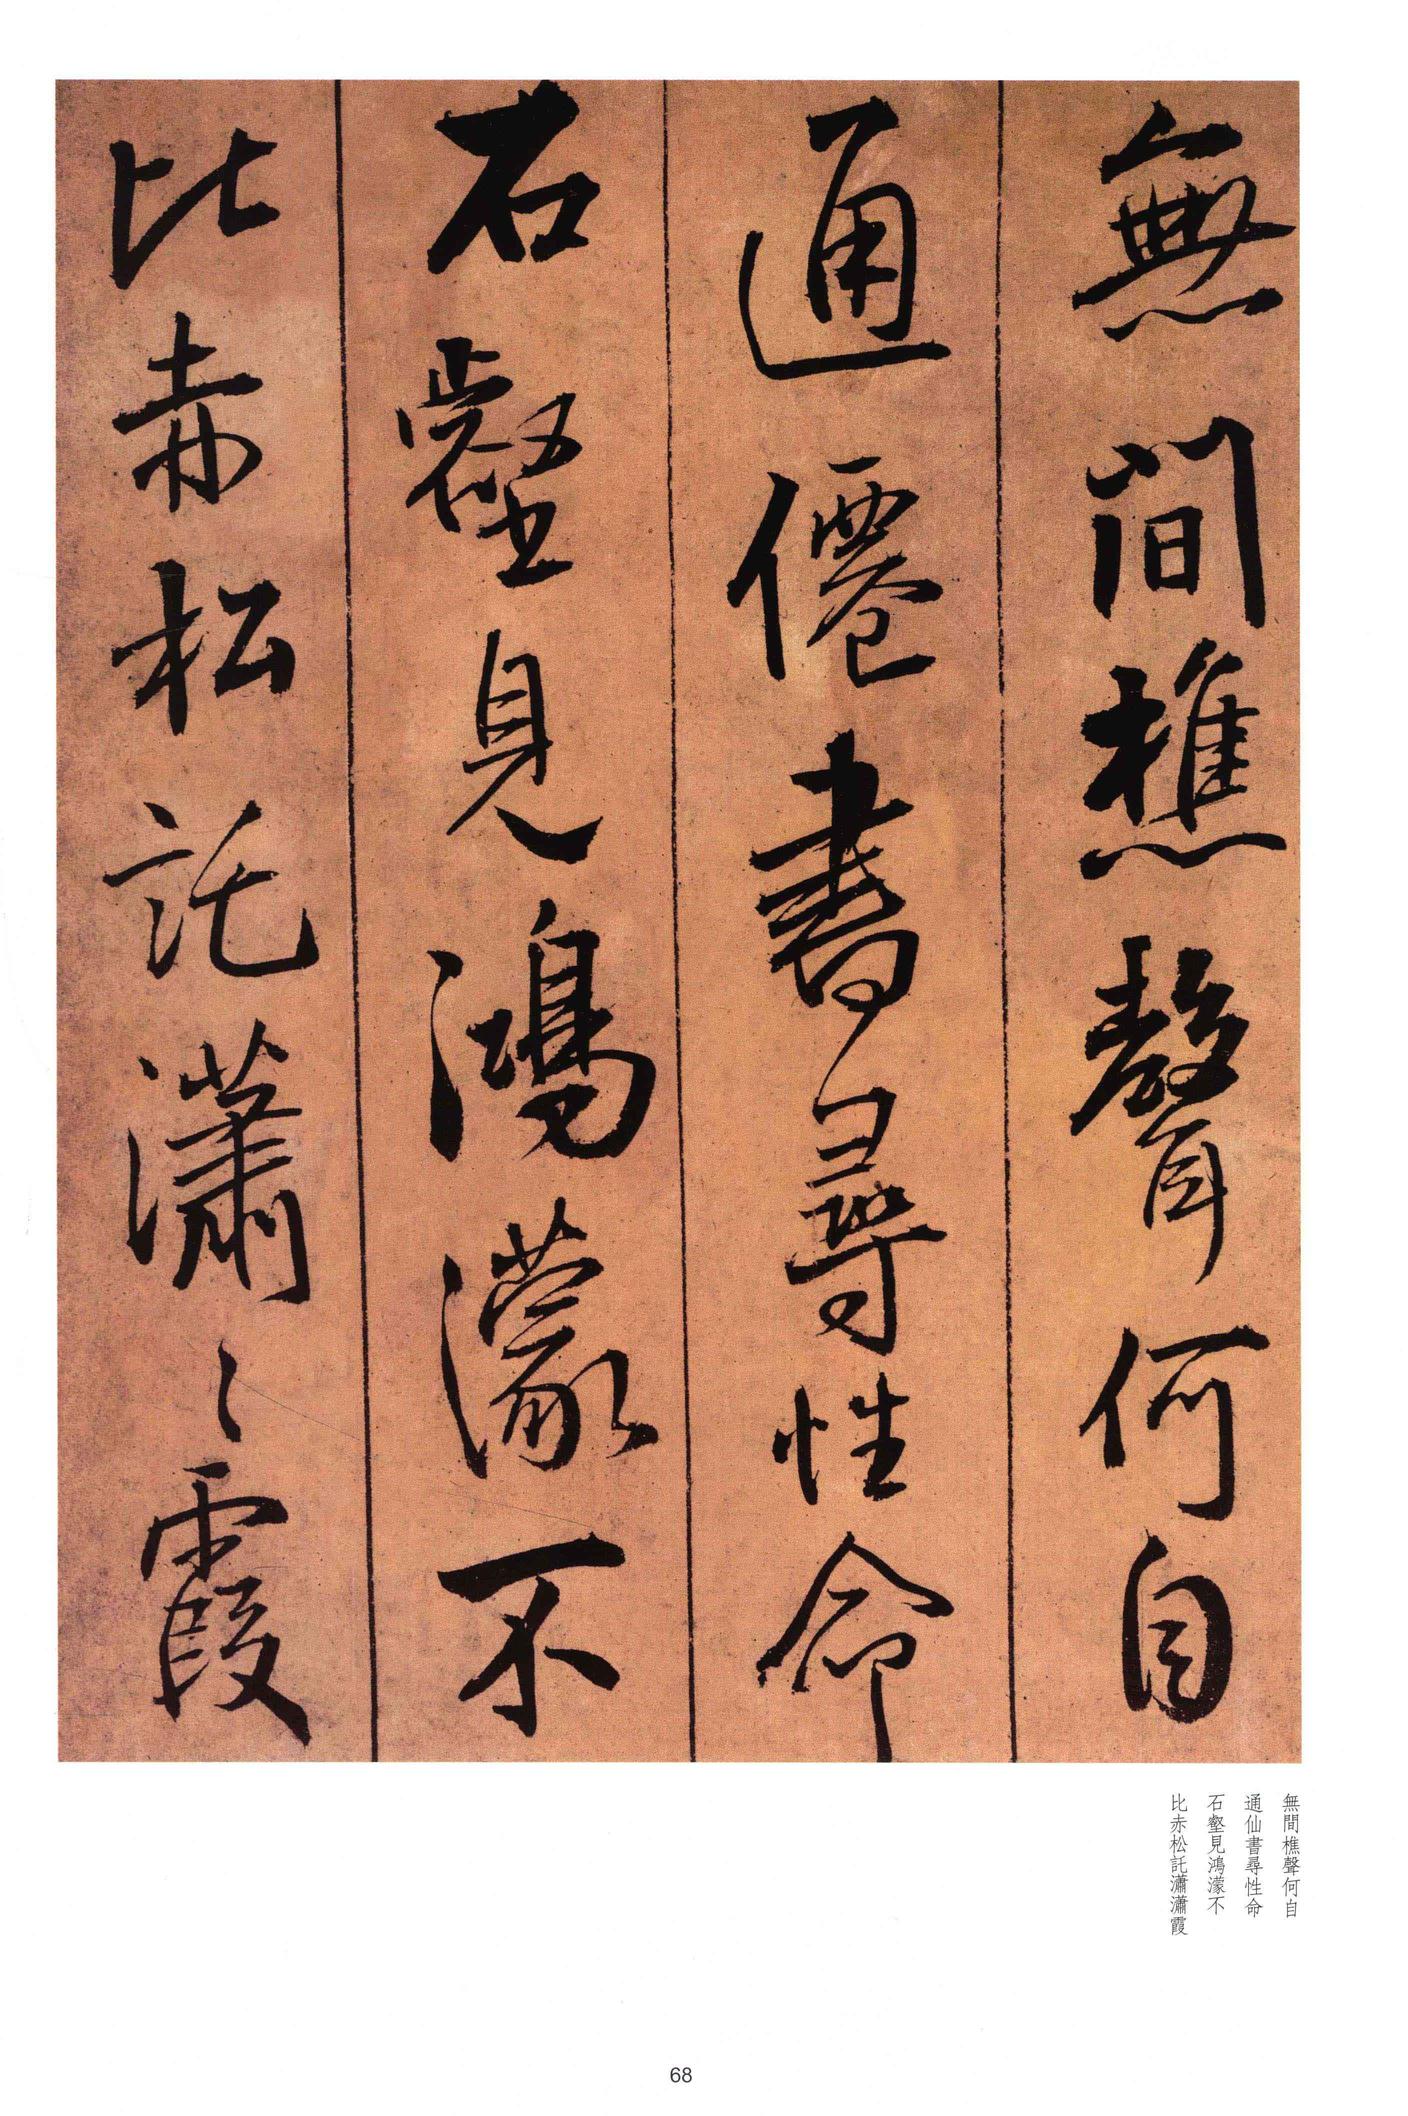 無間樵聲何自
通僊書尋性命
石壑見鴻濛不
比赤松託瀟〻霞
無間樵聲何自
通仙書尋性命
石壑見鴻濛不
比赤松託瀟瀟霞
68